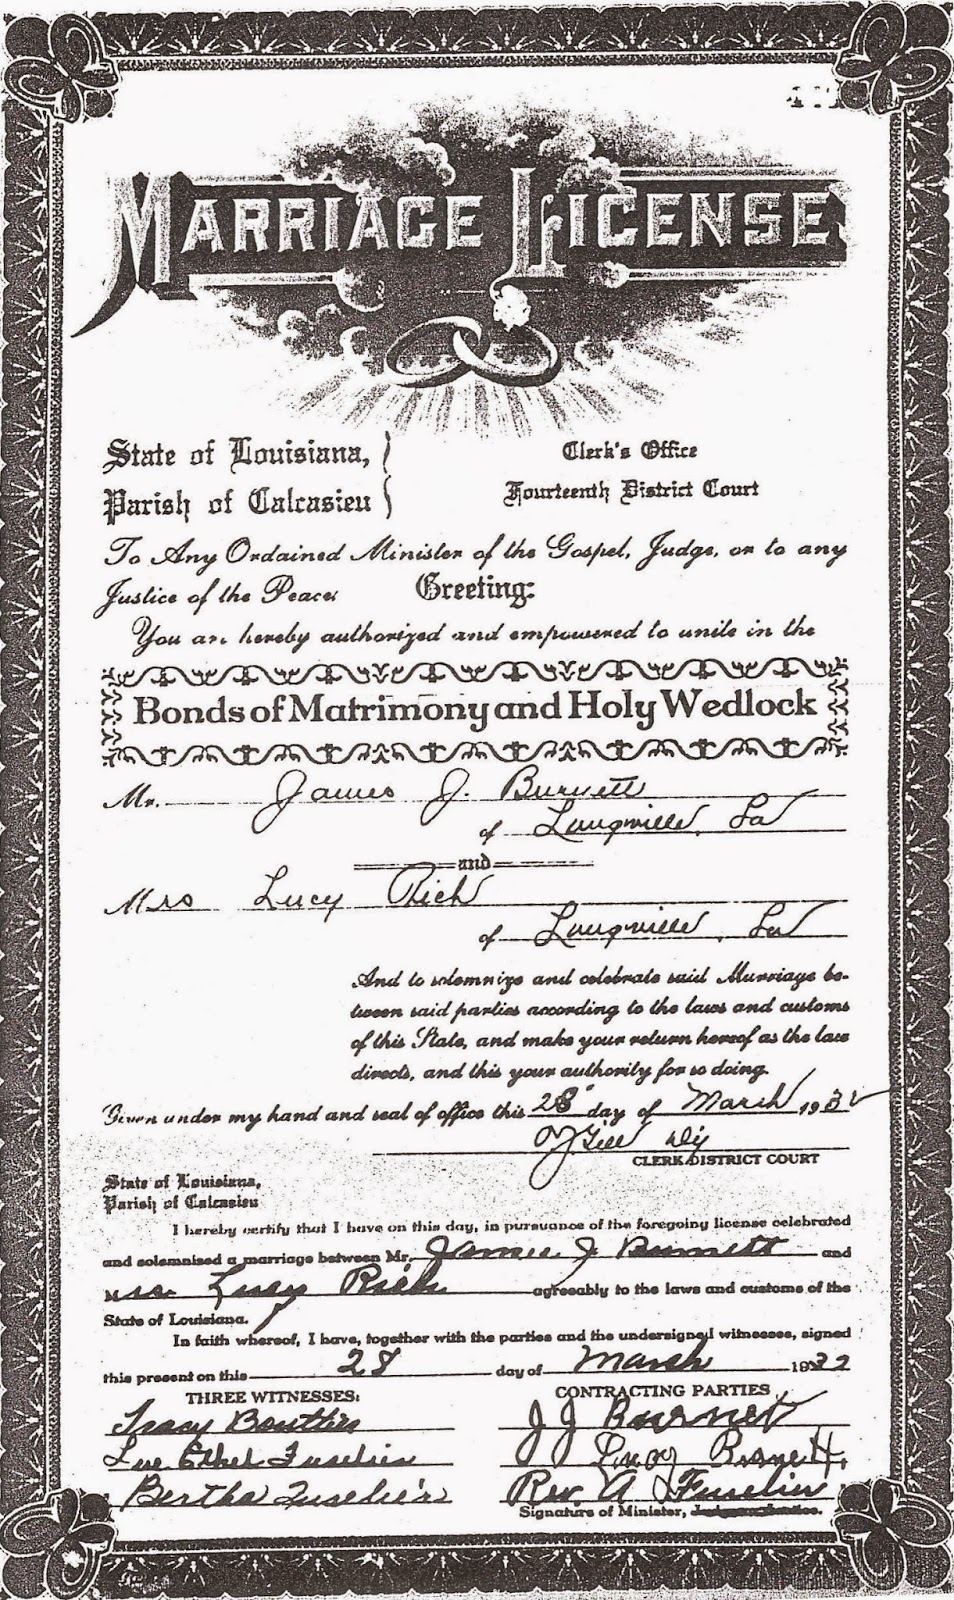 MARRIAGE LICENSE
State of Louisiana,
Parish of Calcasieu
Clerk's Office
Fourteenth District Court
To Any Ordained Minister of the Gospel, Judge, or to any
Justice of the Peace: Greeting:
You are hereby authorized and empowered to unite in the
Bonds of Matrimony and Holy Wedlock
Mr. James J. Burnett
of Longville, La
and
Mrs Lucy Rich
of Longville, La
And to solemnize and celebrate said Marriage be-
tween said parties according to the laws and customs
of this State, and make your return hereof as the law
directs, and this your authority for so doing.
Given under my hand and seal of office this 28 day of March 1932
Gill Dy
CLERK DISTRICT COURT
State of Louisiana,
Parish of Calcasieu
I hereby certify that I have on this day, in pursuance of the foregoing license celebrated
and solemnised a marriage between Mr. James J. Burnett and
Mrs. Lucy Rich agreeably to the laws and customs of the
State of Louisiana.
In faith whereof, I have, together with the parties and the undersigned witnesses, signed
this present on this 28 day of March 1932
THREE WITNESSES:
Tracy Bouttier
Lue Ethel Fuselier
Bertha Fuselier
CONTRACTING PARTIES
J J Burnett
Lucy Burnett
Rev. A Fuselier
Signature of Minister,